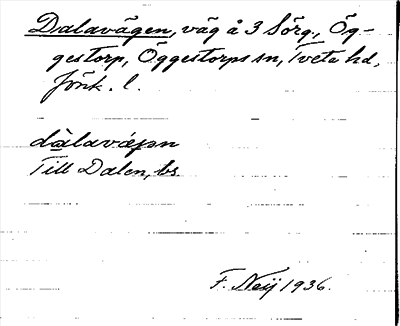 Dalavägen, väg å 3 Sörg., Ög-
gestorp, Öggestorps sn, Tveta hd,
Jönk. l.
dàlavä́gən
Till Dalen, bs
F. Neij 1936.